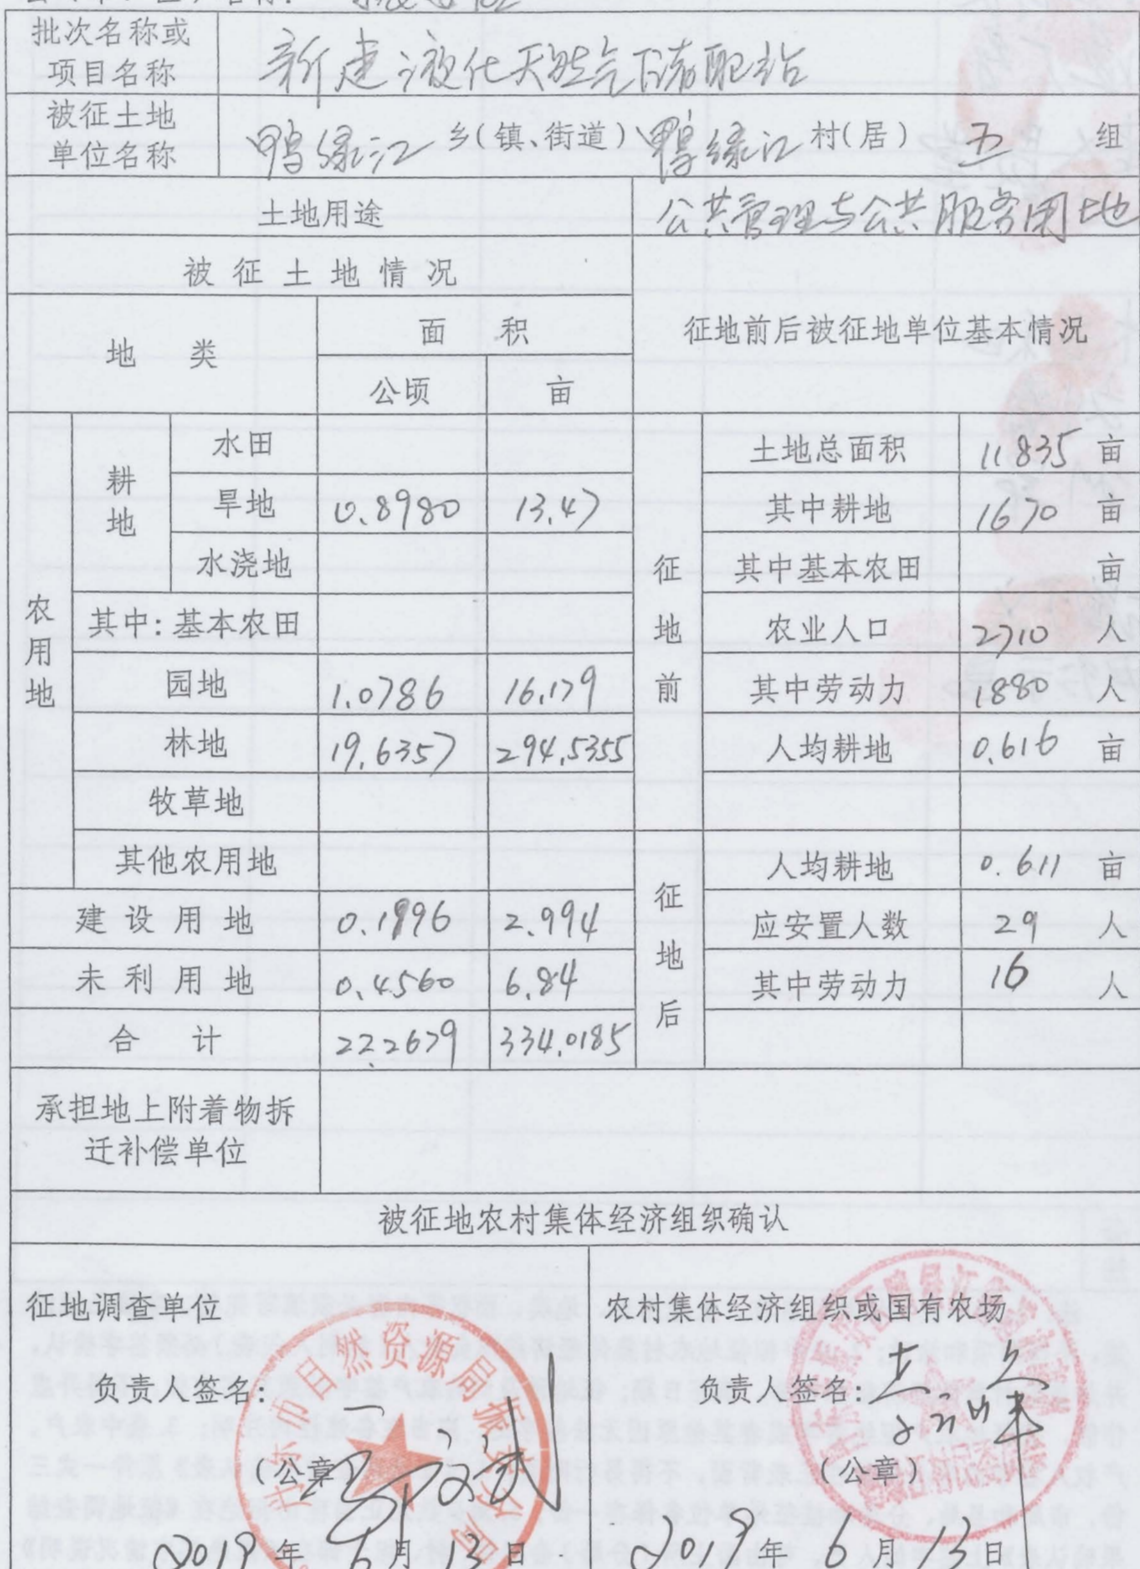 批次名称或
项目名称
新建液化天然气储配站
被征土地
单位名称
鸭绿江 乡(镇、街道) 鸭绿江 村(居) 五 组
土地用途 公共管理与公共服务用地
被征土地情况
征地前后被征地单位基本情况
地 类 面 积
公顷 亩
农用地
耕地
水田
旱地 0.8980 13.47
水浇地
其中:基本农田
园地 1.0786 16.179
林地 19.6357 294.5355
牧草地
其他农用地
建设用地 0.1996 2.994
未利用地 0.4560 6.84
合 计 22.2679 334.0185
征地前
土地总面积 11835 亩
其中耕地 1670 亩
其中基本农田 亩
农业人口 2710 人
其中劳动力 1880 人
人均耕地 0.616 亩
征地后
人均耕地 0.611 亩
应安置人数 29 人
其中劳动力 16 人
承担地上附着物拆
迁补偿单位
被征地农村集体经济组织确认
征地调查单位
负责人签名:
(公章)
2019年6月13日
农村集体经济组织或国有农场
负责人签名:
(公章)
2019年6月13日
自然资源局振